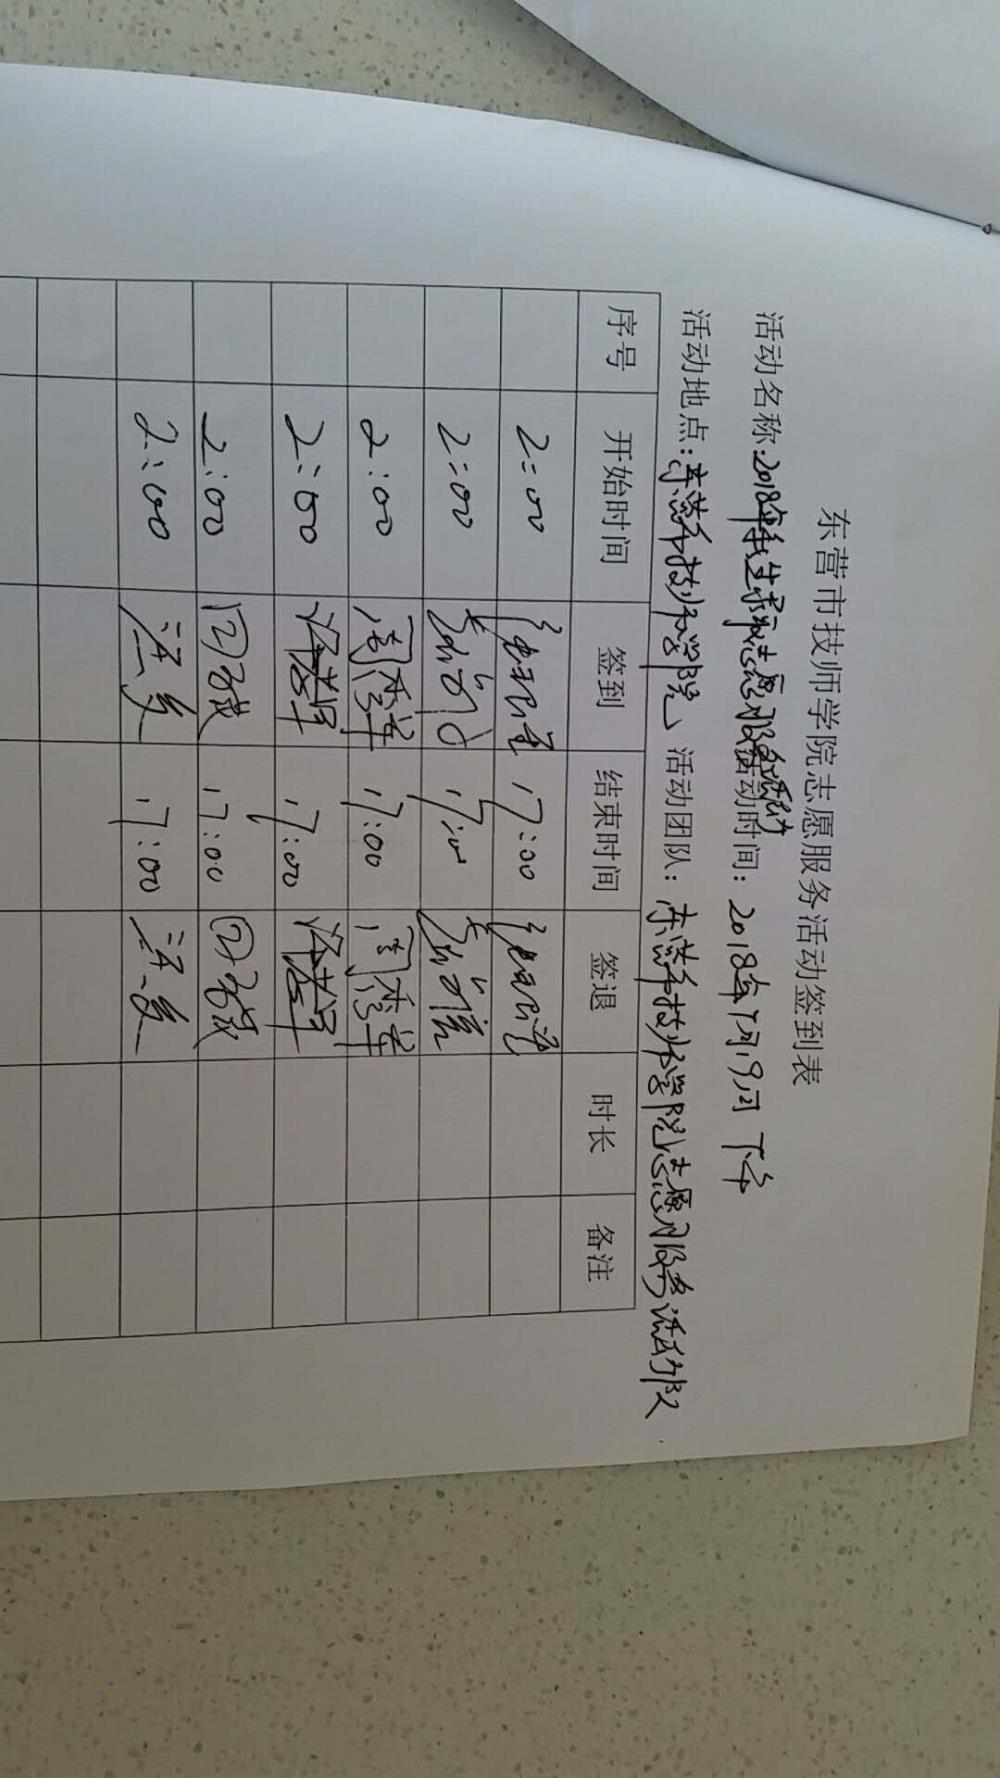 东营市技师学院志愿服务活动签到表
活动名称:2018年新生录取志愿服务活动 活动时间: 2018年7月19日 下午
活动地点:东营市技师学院 活动团队: 东营市技师学院志愿服务活动队
序号 开始时间 签到 结束时间 签退 时长 备注
2:00 17:00
2:00 17:00
2:00 周秀萍 17:00 周秀萍
2:00 17:00
2:00 17:00
2:00 17:00